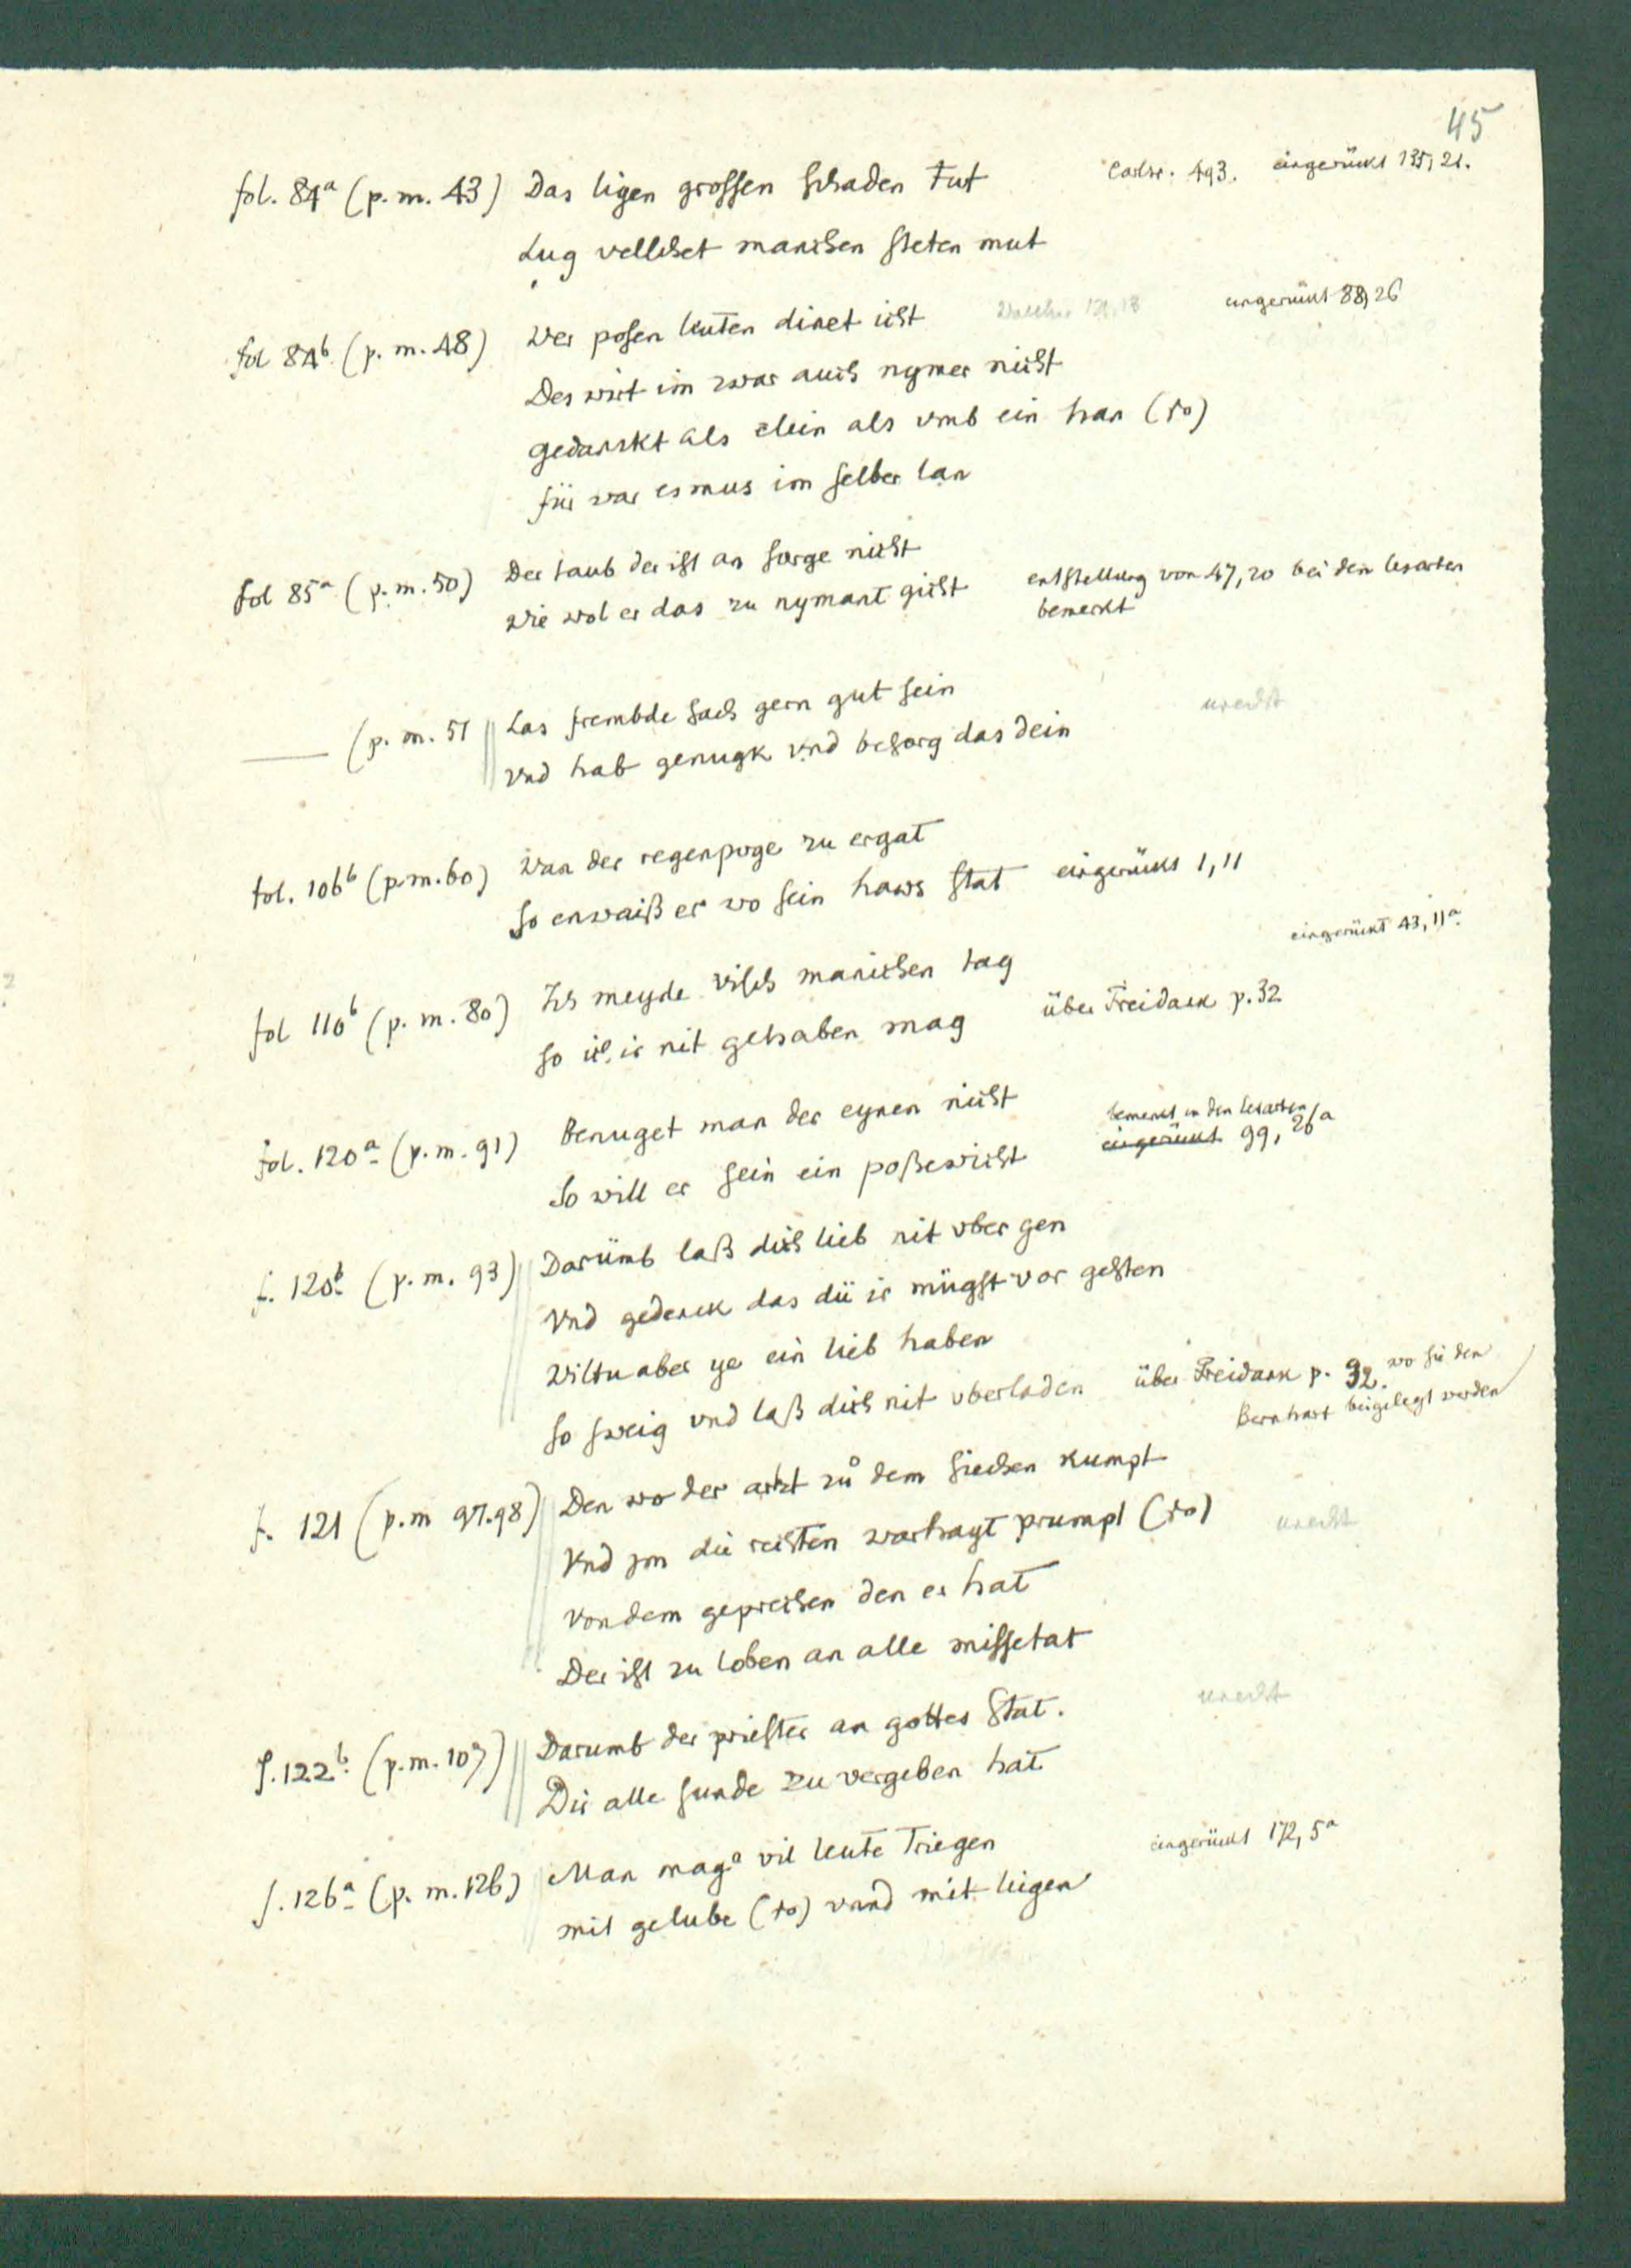 45
fol. 84a (p. m. 43) Das ligen grossen schaden tut Carlsr. 493. eingerückt 135, 21.
Lug velschet manchen steten mut
fol 84b (p. m. 48) Wer posen leuten dinet icht eingerückt 88, 26
Des wirt im zwar auch nymer nicht
gedanckt als clein als vmb ein han (so)
für war es mus im selber lan
fol 85a (p. m. 50) Der taub der ist an sorge nicht
wie wol er das zu nymant gicht entstellung von 47, 20 bei den lesarten
bemerkt
—— (p. m. 51 Las frembde sach gern gut sein unecht
vnd hab genugk vnd besorg das dein
fol. 106b (p. m. 60) Wan der regenpoge zu ergat
so enwaiß er wo sein haws stat eingerückt 1, 11
eingerückt 43, 11a.
fol 110b (p. m. 80) Ich meyde visch manichen tag
so ich ir nit gehaben mag über Freidank p. 32
fol. 120a (p. m. 91) Benuget man der eynen nicht bemerkt in den lesarten
So will er sein ein poßewicht eingerückt 99, 26/a
f. 120b (p. m. 93) Darümb laß dich lieb nit vber gen
Vnd gedenck das dü ir mügst vor gesten
Wiltu aber ye ein lieb haben
so sweig vnd laß dich nit vberladen über Freidank p. 32. wo sie den
Bernhart beigelegt werden
f. 121 (p. m 97.98) Den wo der artzt zů dem siechen kumpt
Vnd jm die rechten warhayt prumpt (so) unecht
von dem geprechen den er hat
Der ist zu loben an alle missetat
f. 122b. (p. m. 107) Darumb der priester an gottes stat. unecht
Dir alle sunde zu vergeben hat
f. 126a (p. m. 126) Man mag vil leute Triegen eingerückt 172, 5a
mit gelube (so) vnnd mit liegen